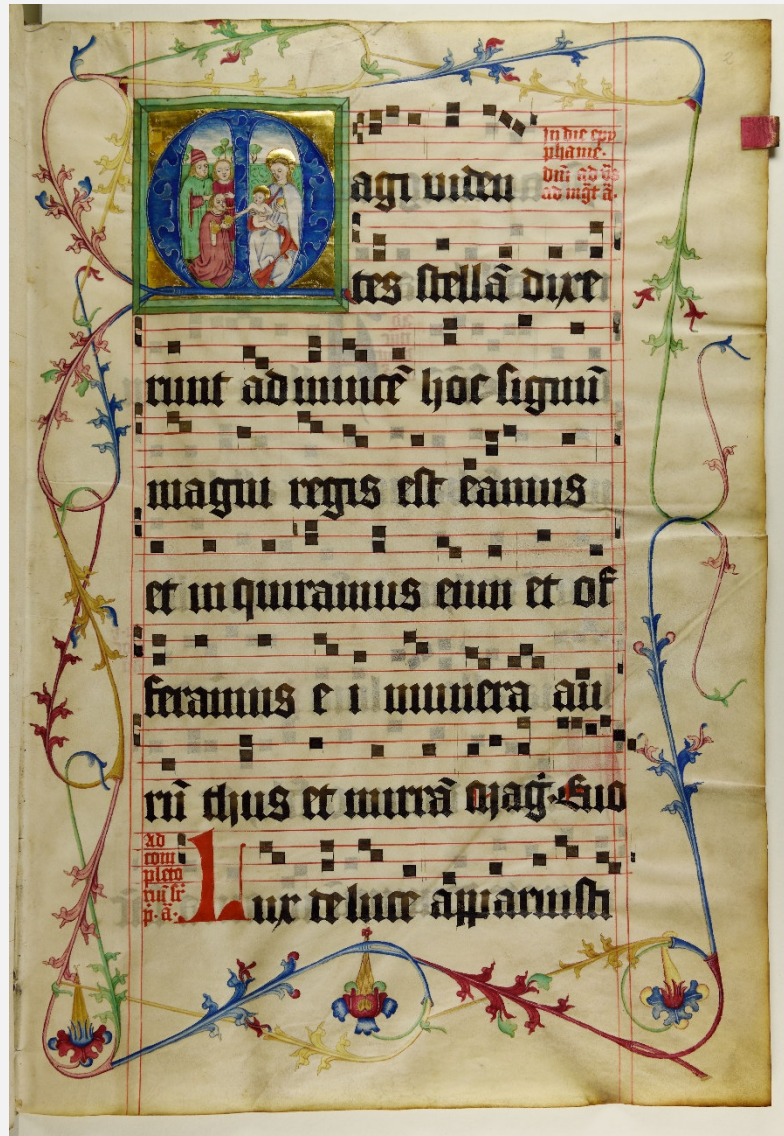 In die epy
phanie.
ad mgt a.
Magi viden
tes stellā dixe
runt ad inuicē hoc signū
magni regis est eamus
et inquiramus eum et of
feramus e i munera au
rū thus et mirrā Mag. Euo
ad
com
pleto
p. a.
Lux de luce apparuisti